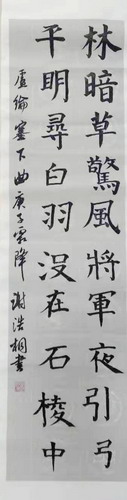 林暗草驚風將軍夜引弓
平明尋白羽没在石棱中
盧綸塞下曲庚子霜降謝浩桐書